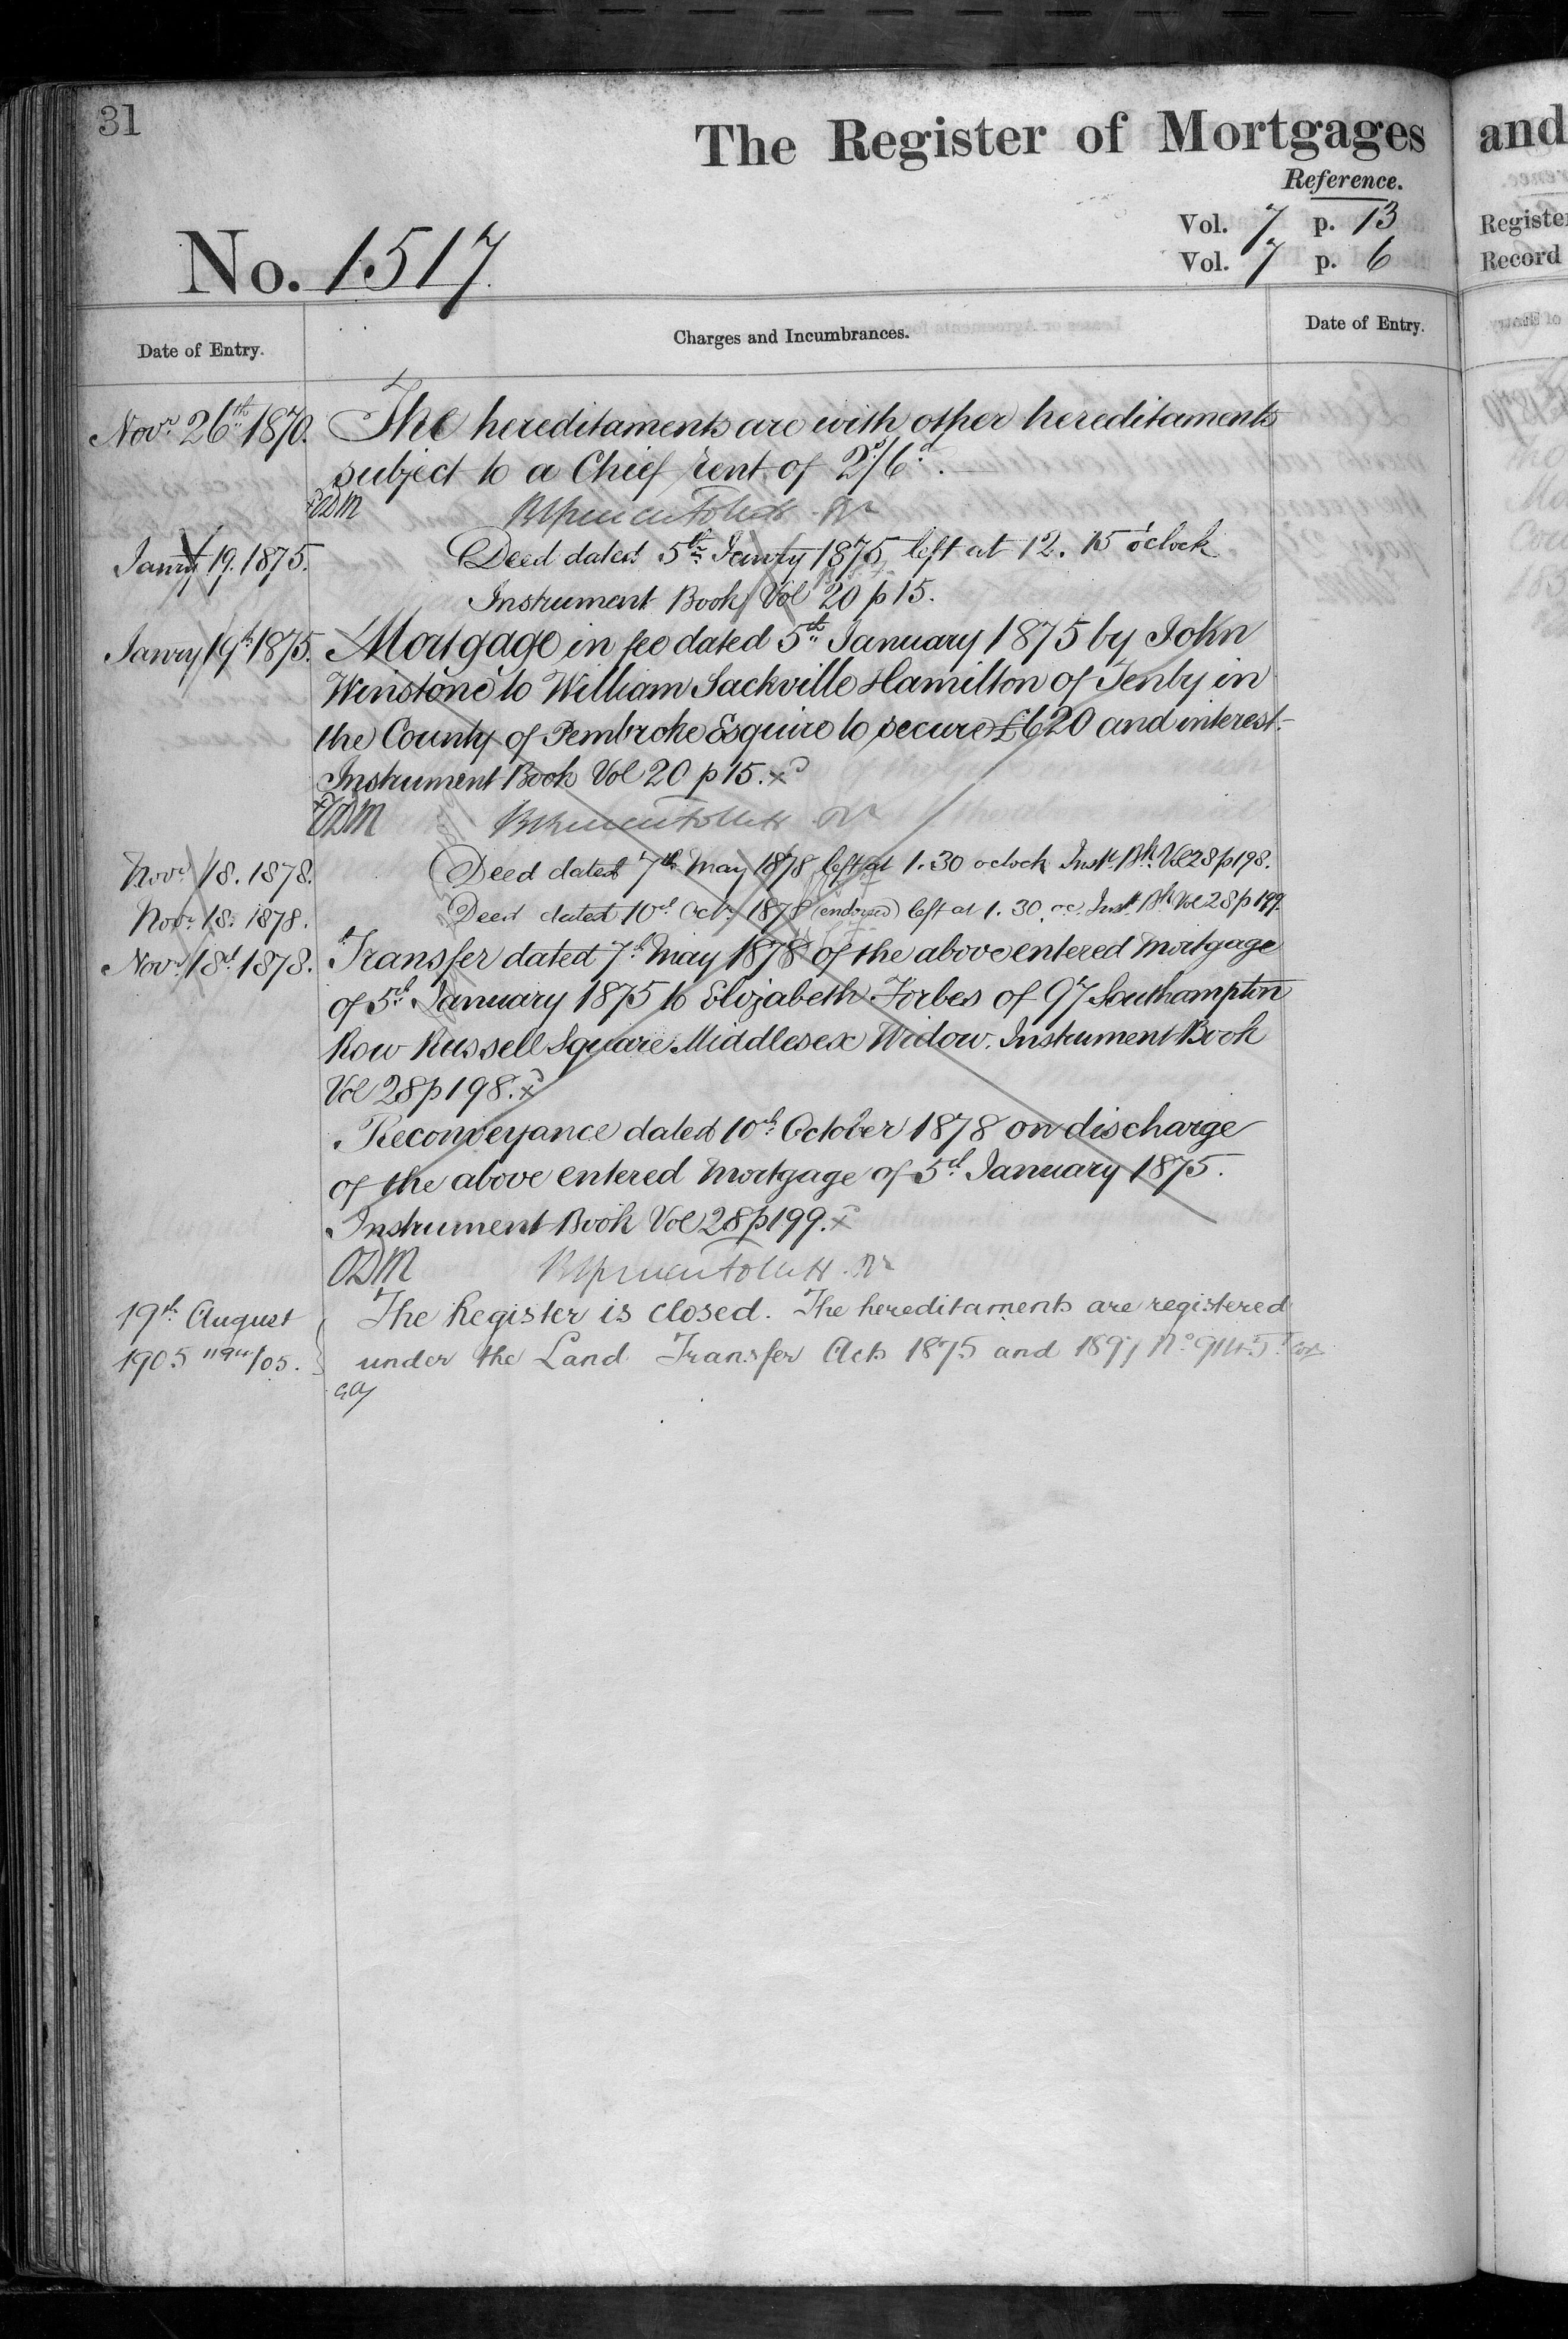 31
The Register of Mortgages and
Reference.
Vol. 7 p. 13 Register
Vol. 7 p. 6 Record
No. 1517
Date of Entry. Charges and Incumbrances. Date of Entry.
Novr 26th 1870. The hereditaments are with other hereditaments
subject to a Chief rent of 2s/6d.
Janry 19. 1875. Deed dated 5th Janry 1875 left at 12.15 o'clock
Instrument Book Vol 20 p 15.
Janry 19th 1875. Mortgage in fee dated 5th January 1875 by John
Winstone to William Sackville Hamilton of Tenby in
the County of Pembroke Esquire to secure £620 and interest.
Instrument Book Vol 20 p 15. x
Novr 18. 1878. Deed dated 7th May 1878 left at 1.30 oclock Inst. Bk. Vol 28 p 198.
Novr 18. 1878. Deed dated 10th Octr 1878 (endorsed) left at 1.30 oc. Inst. Bk Vol 28 p 199.
Novr 18th 1878. Transfer dated 7th May 1878 of the above entered Mortgage
of 5th January 1875 to Elizabeth Forbes of 97 Southampton
Row Russell Square Middlesex Widow. Instrument Book
Vol 28 p 198. x
Reconveyance dated 10th October 1878 on discharge
of the above entered Mortgage of 5th January 1875.
Instrument Book Vol 28 p 199. x
ODM
19th August The Register is closed. The hereditaments are registered
1905 /05. under the Land Transfer Acts 1875 and 1897 No.